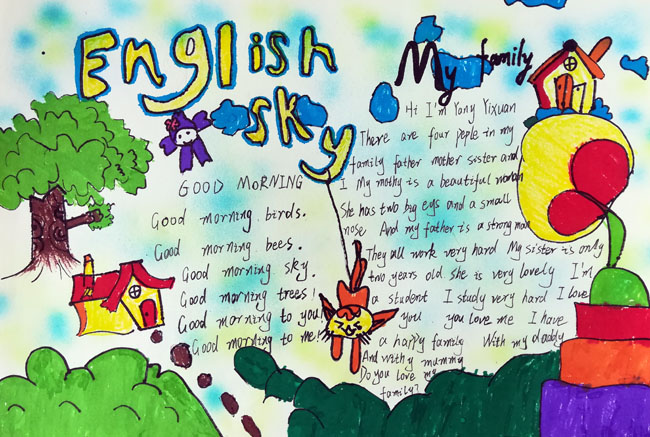 English
sky
GOOD MORNING
Good morning birds.
Good morning bees.
Good morning sky.
Good morning trees!
Good morning to you!
Good morning to me!
My family
Hi I'm Yang Yixuan
There are four peple in my
family father mother sister and
I My mothy is a beautiful woman
She has two big eys and a small
nose And my father is a strong man
They all work very hard My sister is only
two years old she is very lovely I'm
a student I study very hard I love
you you love me I have
a happy family With my daddy
And withy mummy
Do you love my
family?